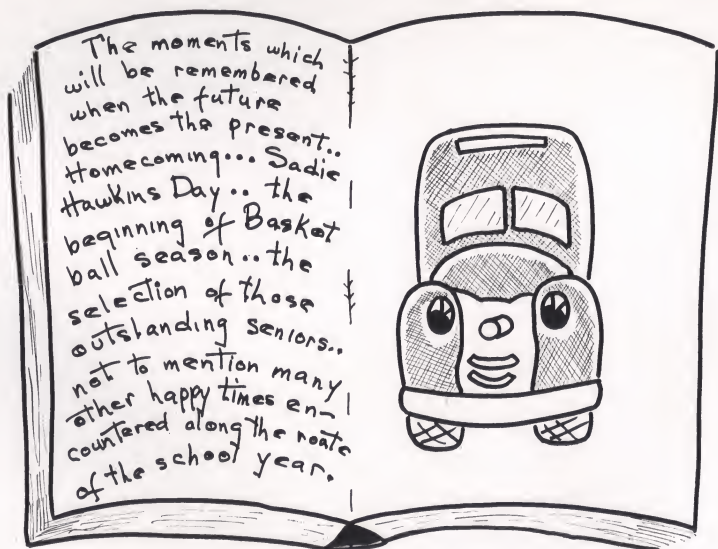 The moments which
will be remembered
when the future
becomes the present..
Homecoming... Sadie
Hawkins Day.. the
beginning of Basket
ball season.. the
selection of those
outstanding seniors..
not to mention many
other happy times en-
countered along the route
of the school year.